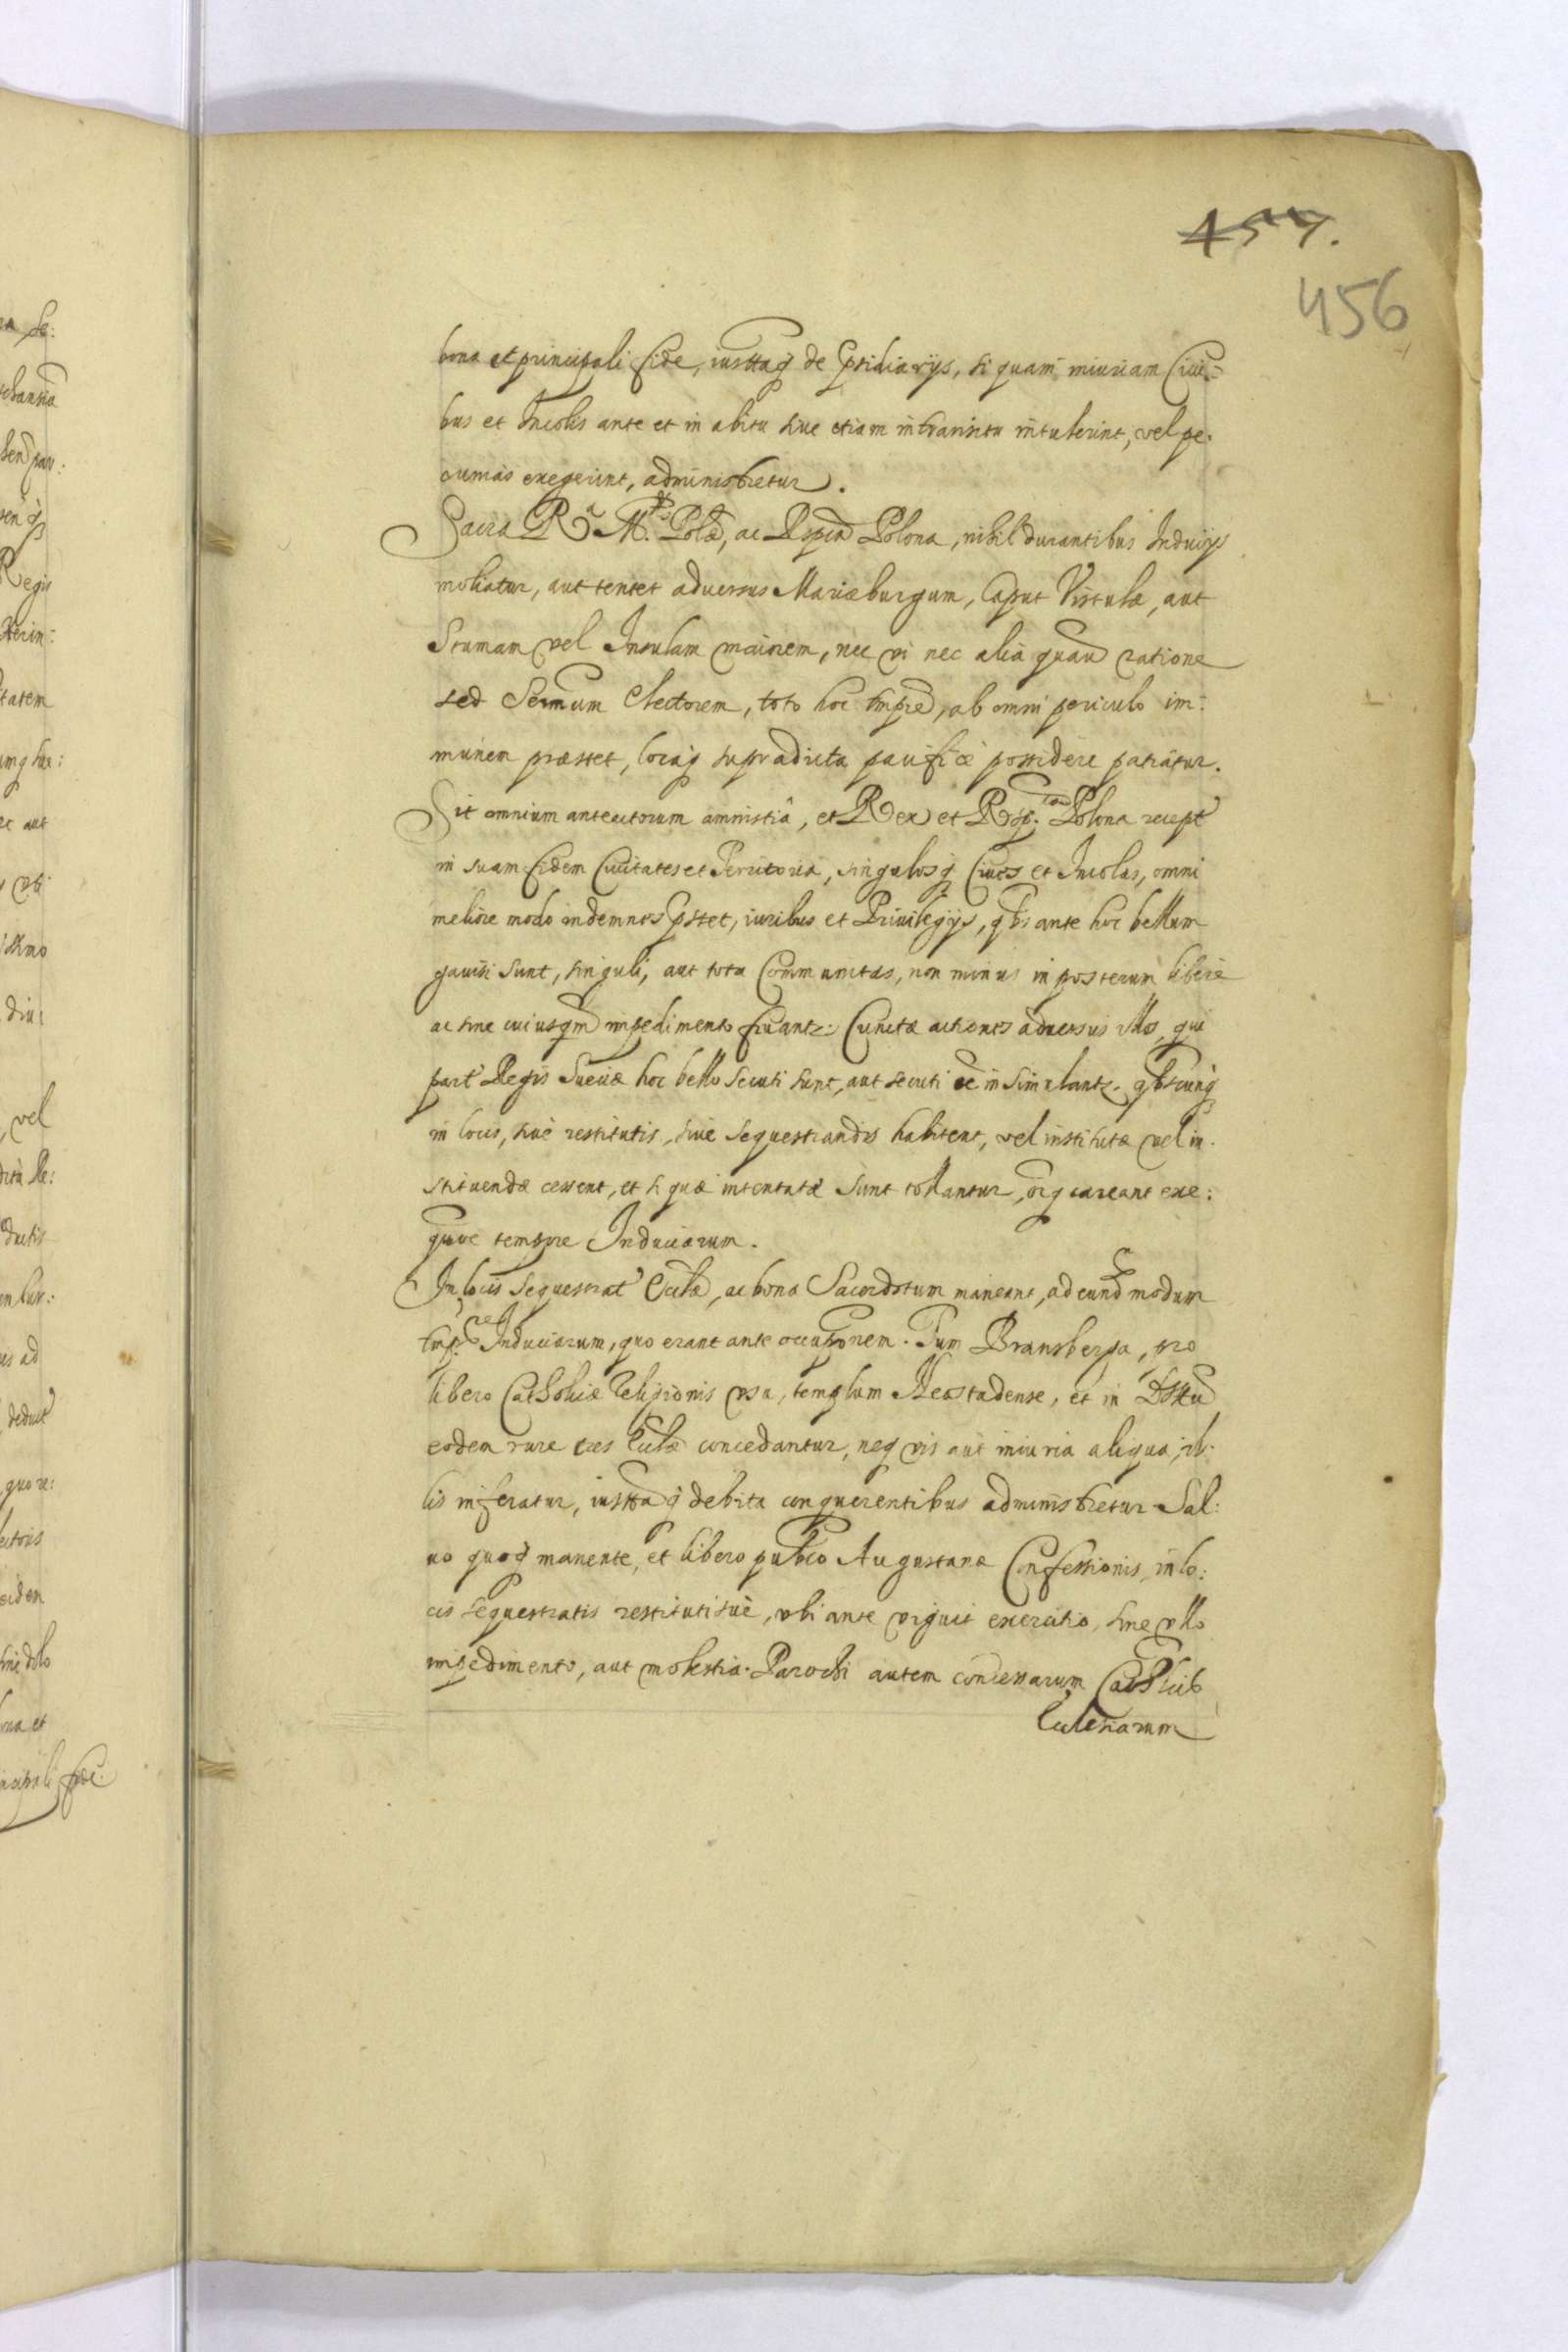 457.
456
bona et principali fide, iusttiaq de Pstidiarijs, si quam iniuriam Ciui-
bus et Incolis ante et in abitu siue etiam in transitu intulerint, vel pe-
cunias exegerint, administretur.
Sacra Ra Mtas Polae, ac Respca Polona, nihil durantibus Inducijs
moliatur, aut tentet aduersus Mariaeburgum, Caput Vistulae, aut
Stumam vel Insulam maiorem, nec vi nec alia quau ratione
sed Sermum Electorem, toto hoc tmpre, ab omni periculo im-
munem praestet, locaq supradicta pacifice possidere patiatur.
Sit omnium anteactorum amnistia, et Rex et Resp. Polona recept
in suam fidem Ciuitates et Territoria, singulosq Ciues et Incolas, omni
meliore modo indemnes pstet, iuribus et Priuilegijs, qbs ante hoc bellum
gauisi sunt, singuli, aut tota Communitas, non minus in posterum libere
ac sine cuiusqm impedimento fruantr. Cunctae actiones aduersus illos, qui
part Regis Sueciae hoc bello secuti sunt, aut secuti ee insimulantr. qbscunq
in locis, siue restitutis, siue sequestrandis habitent, vel institutae vel in-
stituendae cessent, et si quae intentatae sunt tollantur, oiq careant exe:
qutione tempore Induciarum.
In locis sequestrat Ecclae, ac bona Sacerdotum maneant, ad eund modum
tmpre Induciarum, quo erant ante occuponem. Tum Bransberga, pro
libero Catholicae Religionis vsu, templum Neostadense, et in Dsttu
eodem rure tres Ecclae concedantur, neq vis aut iniuria aliqua, il-
lis inferatur, iusttiaq debita conquerentibus administretur Sal:
uo quoq manente, et libero publico Augustanae Confessionis, in lo:
cis sequestratis restitutisue, vbi ante viguit exercitio, sine vllo
impedimento, aut molestia. Parochi autem concessarum Catholicis
Ecclesiarum